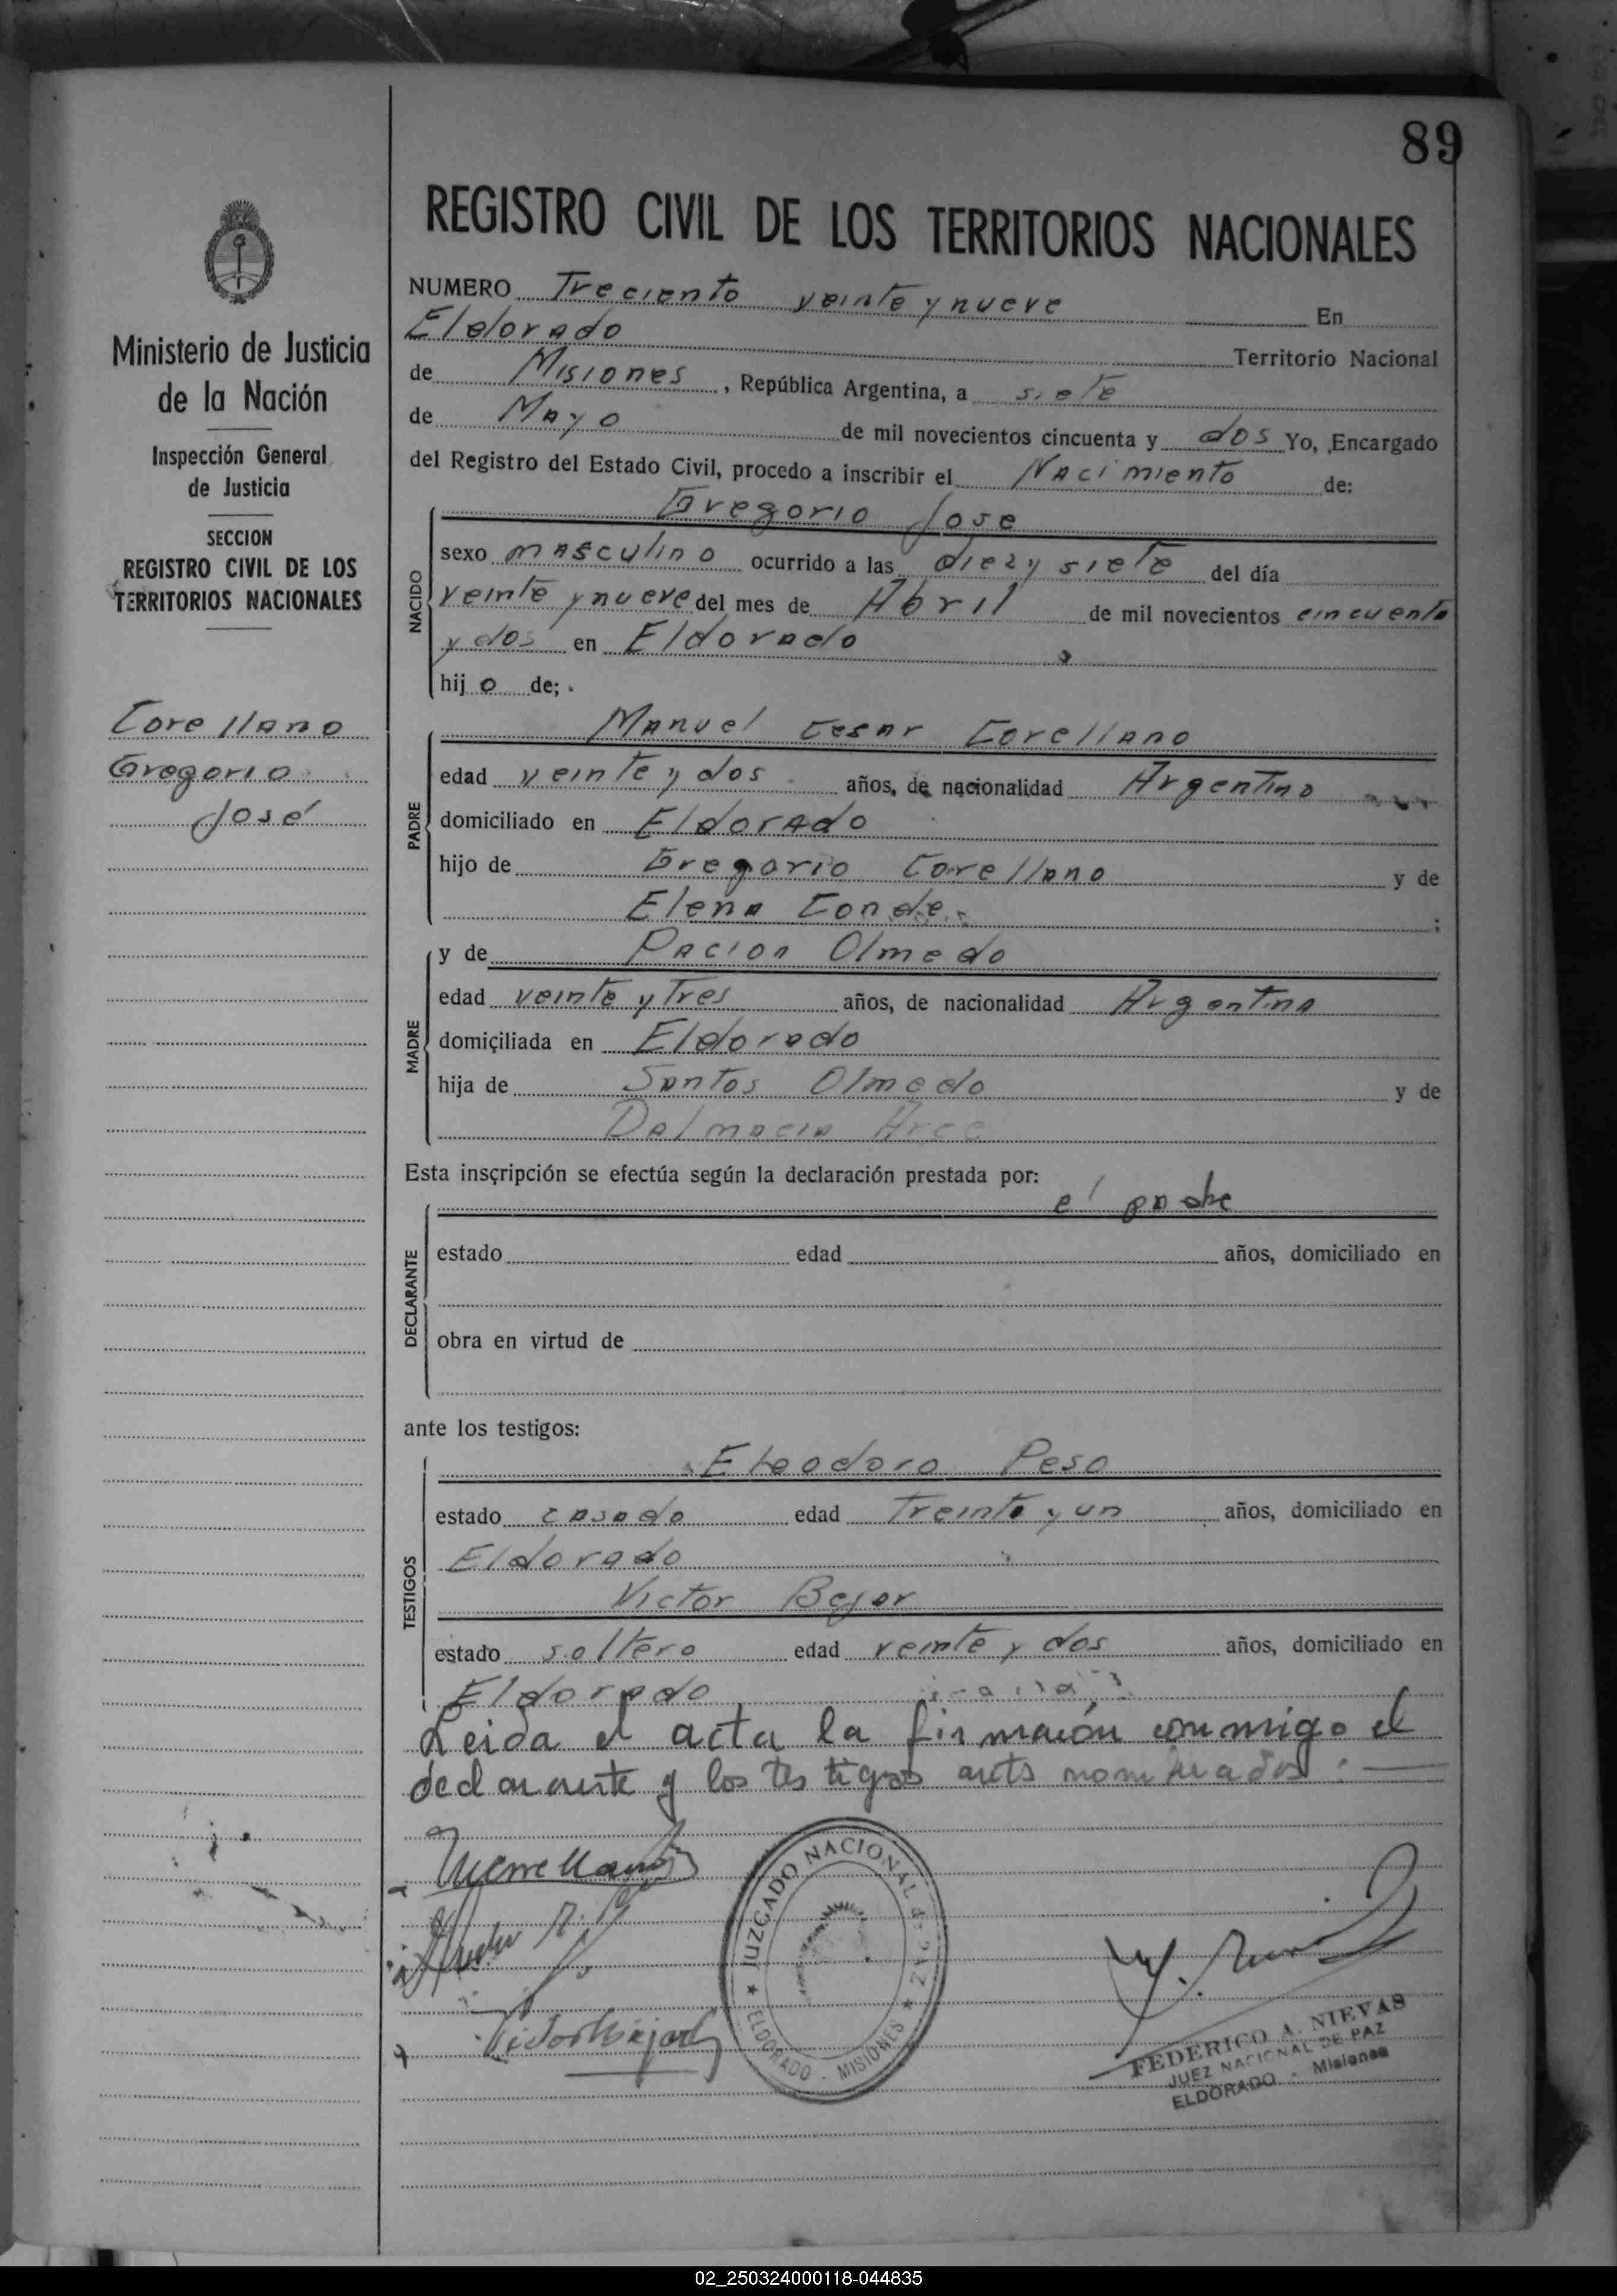 89
REGISTRO CIVIL DE LOS TERRITORIOS NACIONALES
Ministerio de Justicia
de la Nación
Inspección General
de Justicia
SECCION
REGISTRO CIVIL DE LOS
TERRITORIOS NACIONALES
Corellano
Gregorio
José
NUMERO Treciento veinte y nueve En
Eldorado Territorio Nacional
de Misiones, República Argentina, a siete
de Mayo de mil novecientos cincuenta y dos Yo, Encargado
del Registro del Estado Civil, procedo a inscribir el Nacimiento de:
NACIDO
Gregorio Jose
sexo masculino ocurrido a las diez y siete del día
veinte y nueve del mes de Abril de mil novecientos cincuenta
y dos en Eldorado
hijo de;
PADRE
Manuel Cesar Corellano
edad veinte y dos años, de nacionalidad Argentino
domiciliado en Eldorado
hijo de Gregorio Corellano y de
Elena Conde
MADRE
y de Pacion Olmedo
edad veinte y Tres años, de nacionalidad Argentina
domiciliada en Eldorado
hija de Santos Olmedo y de
Dalmacia Arce
Esta inscripción se efectúa según la declaración prestada por:
DECLARANTE
el padre
estado edad años, domiciliado en
obra en virtud de
ante los testigos:
TESTIGOS
Eleodoro Peso
estado casado edad Treinta y un años, domiciliado en
Eldorado
Victor Bejar
estado soltero edad veinte y dos años, domiciliado en
Eldorado
Leida el acta la firmaión conmigo el
declarante y los testigos ants nominados:
JUZGADO NACIONAL de PAZ
ELDORADO - MISIONES
FEDERICO A. NIEVAS
JUEZ NACIONAL DE PAZ
ELDORADO - Misiones
02_250324000118-044835